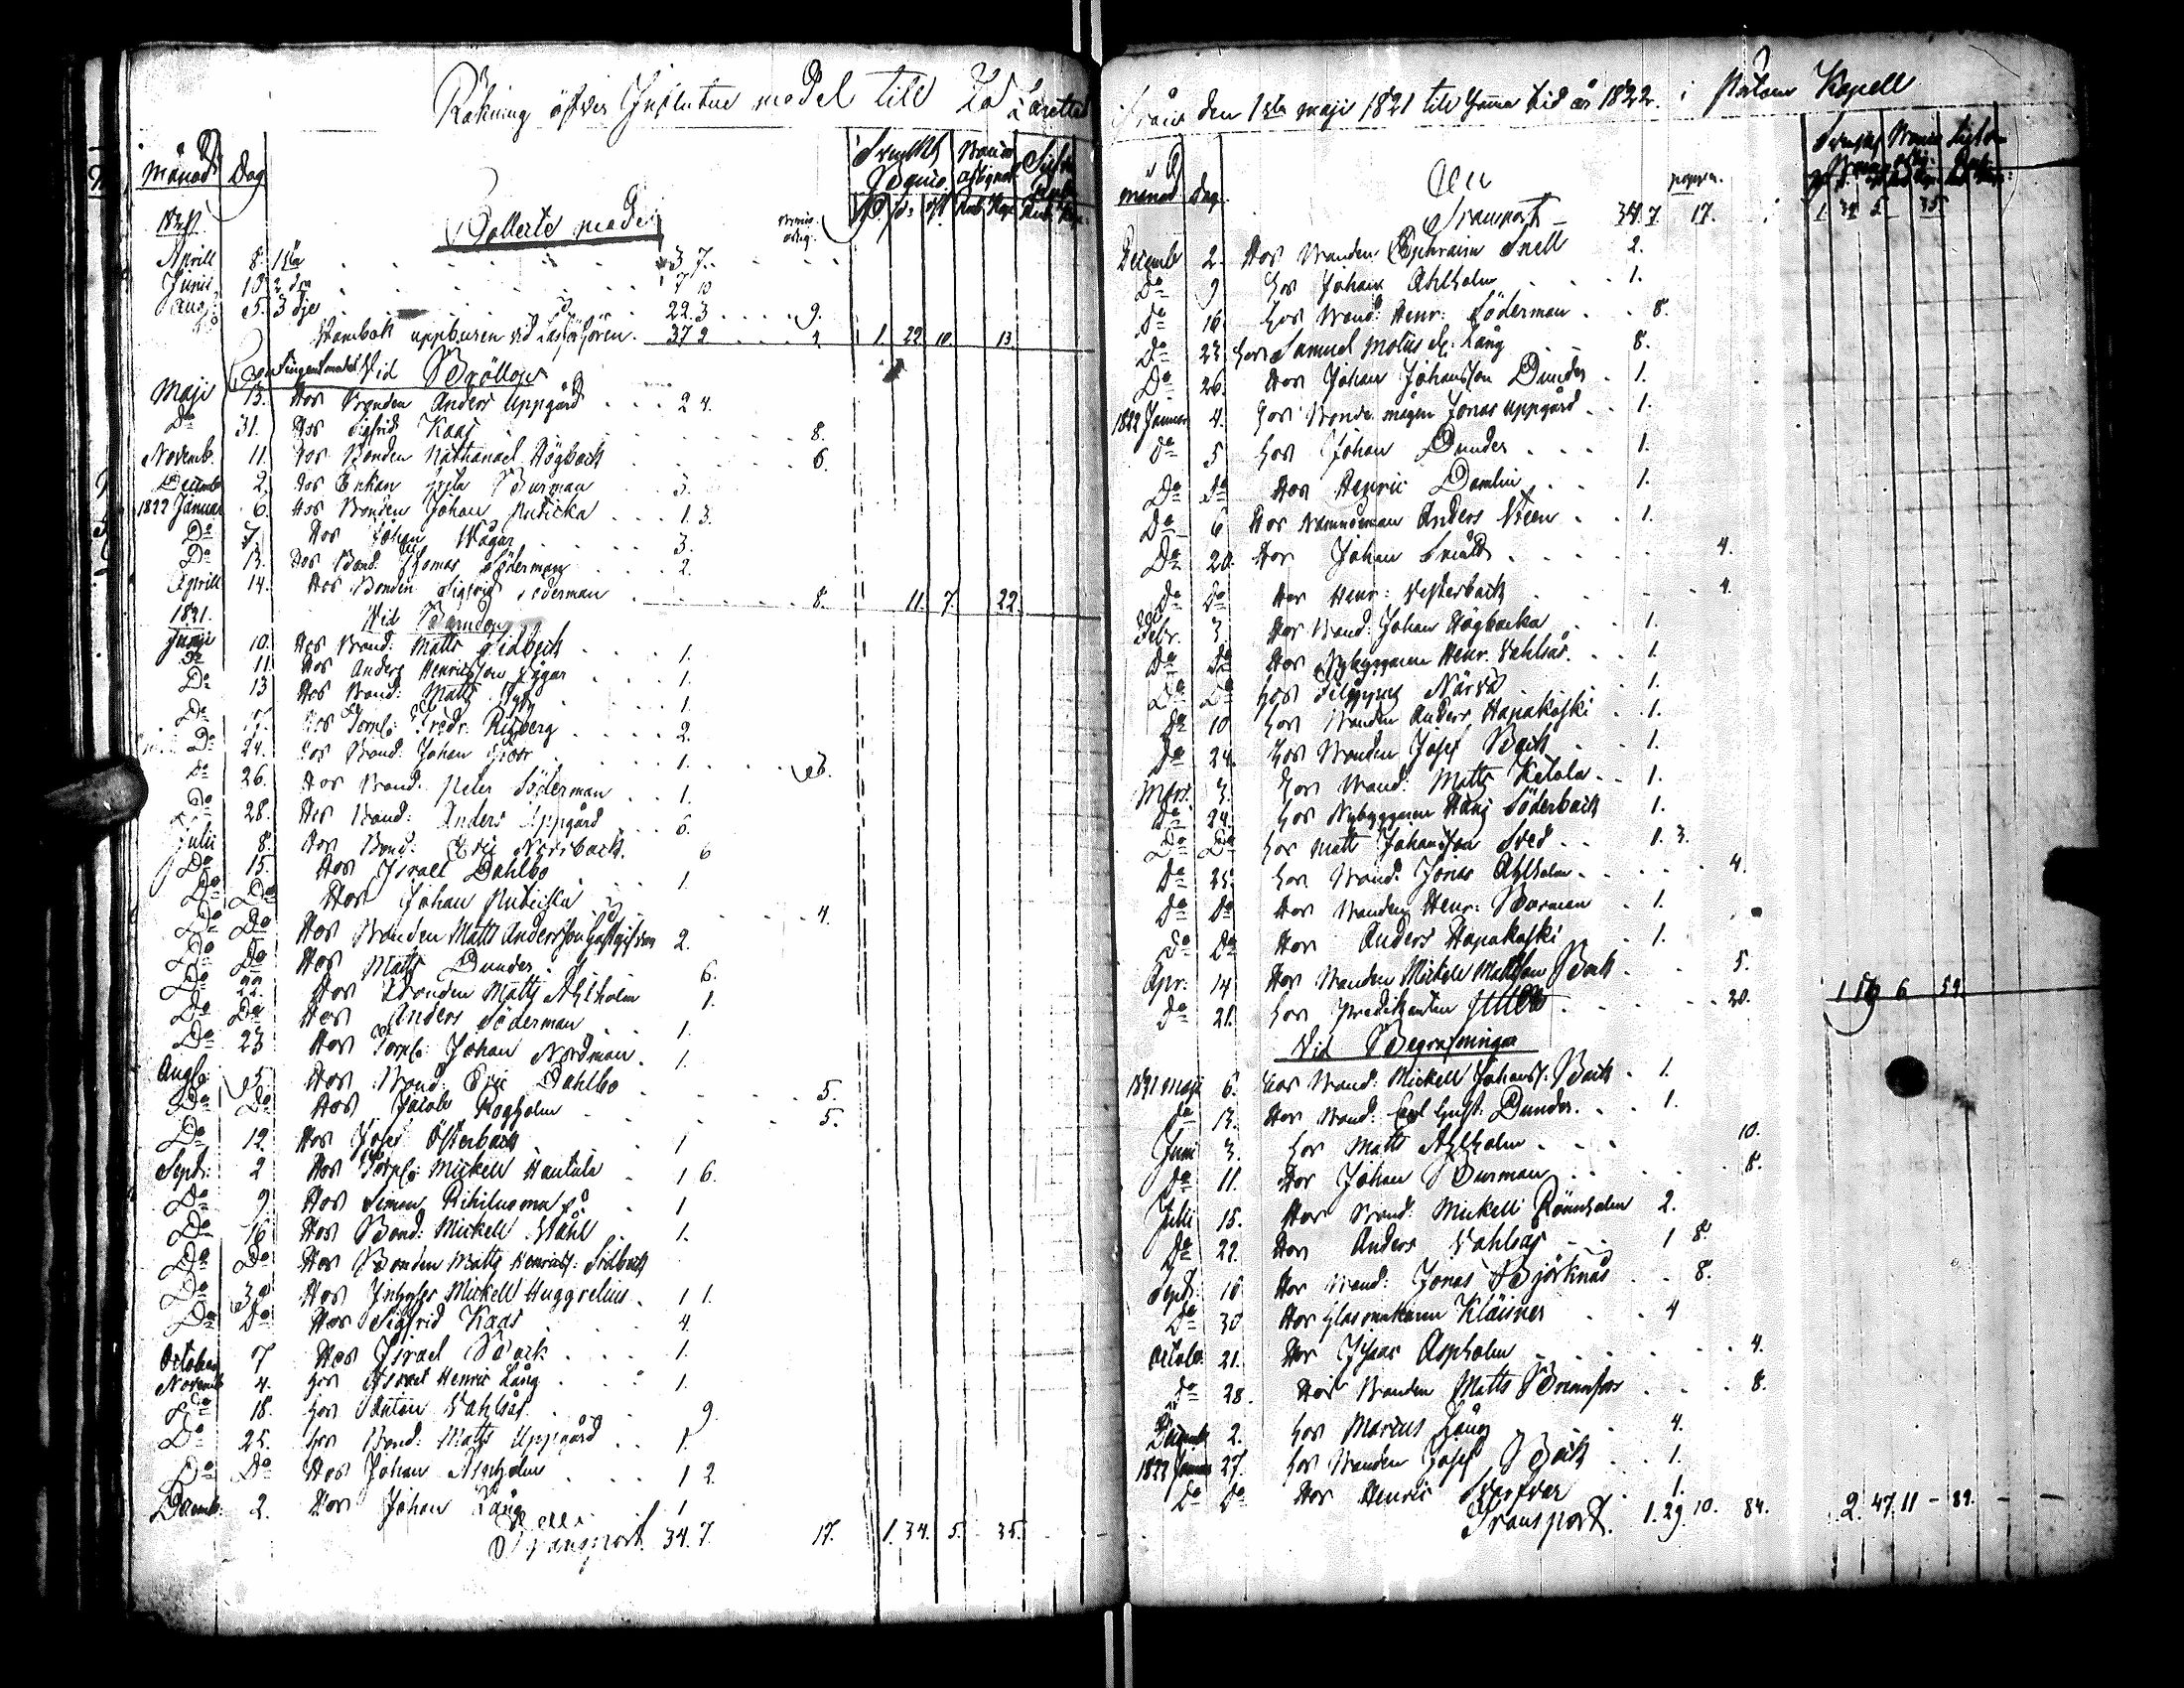 Räkning öfver Influtne medel till Lazarettet
Månad Dag Svenskt Banco Banco assignat. Silfver
1821
Collecte medel
Aprill 8. 1sta 3 7.
Junii 10. 2dra 7 10
Aug: 5. 3dje 22. 3 9.
Stambok uppburen vid Läsförhören. 37 2 4 1. 22. 10. 13.
Vid Bröllop
Maji 13. Hos Bonden Anders Uppgård 2 4.
Do 31. Hos Sigfrid Kaas 8.
Novemb. 11. Hos Bonden Nathanael Högback 6.
Decemb 2. Hos Enkan Burman 3.
1822 Januar 6. Hos Bonden Johan Rudicka 1. 3.
Do 7. Hos Johan Wägar 3.
Do 13. Hos Bond: Thomas Söderman 2.
Aprill 14. Hos Bonden Sigfrid Söderman 8. 11. 7. 22
1821. Vid Barndop
Junii 10. Hos Bond: Matts Sidbäck 1.
Do 11. Hos Anders Henricsson Wägar 1.
Do 13 Hos Bond: Matts 1.
Do Hos Torp: Fredr: Risberg 2.
Do 24. Hos Bond: Johan 1.
Do 26. Hos Bond: Peter Söderman 1.
Do 28. Hos Bond: Anders Uppgård 6.
Julii 8. Hos Bond: Eric Norrback. 6
Do 15. Hos Israel Dahlbo 1.
Do Do Hos Johan Rudicka 4.
Do Do Hos Bonden Matts Andersson Gästgifvar 2.
Do Do Hos Matts Dunder 6.
Do 22. Hos Bonden Matts Ahlholm 1.
Do Do Hos Anders Söderman 1.
Do 23 Hos Torp: Johan Nordman 1.
Aug: 5. Hos Bond: Eric Dahlbo 5.
Do Do Hos Jacob Rogholm 5.
Do 12. Hos Josef Österback 1
Sept: 2 Hos Torp: Mickell Hautala 1 6.
Do 9. Hos Simon Rihiluoma 1
Do 16 Hos Bond: Mickell Stahl 1.
Do Do Hos Bonden Matts Henricss: Sidback
Do 30 Hos Inhyses Mickell Huggrelius 1 1.
Do Do Hos Sigfrid Kaas 4.
October 7 Hos Israel Back 1.
Novemb 4. Hos Henric Lång 1.
Do 18. Hos Anton Vahlsås 9.
Do 25. Hos Bond: Matts Uppgård 1.
Do Do Hos Johan Aspholm 1 2.
Decemb: 2. Hos Johan Lång 1
Transport. 34. 7. 17. 1. 34. 5. 35.
Från den 1sta maji 1821 till samma tid år 1822. i Kapell
månad dag
Transport 34. 7. 17. 1. 34 5. 35.
Decemb 2. Hos Bonden Ephraim Snell 2.
Do 9 Hos Johan Ahlholm 1.
Do 16. Hos Bond: Henr: Söderman 8.
Do 23 Hos Samuel Lång 8.
Do 26. Hos Johan Johansson Dunder 1.
1822 Januar 4. Hos Bonde mågen Jonas uppgård 1.
Do 5 Hos Johan Dunder 1.
Do Do Hos Henric Damlin 1.
Do 6 Hos Nämndeman Anders Steen 1.
Do 20. Hos Johan 4.
Do Do Hos Henr: Vesterback 4.
Febr. 3 Hos Bond: Johan Högbacka 1.
Do Do Hos Nybyggaren Henr. Vahlsås. 1.
Do Do Hos Närvä 1.
Do 10 Hos Bonden Anders Hapakoski 1.
Do 24. Hos Bonden Josef Back 1.
Mars. 3. Hos Bond: Matts Ketola 1.
Do 24. Hos Nybyggaren Hans Söderback 1.
Do Do Hos Matts Johansson Sved 1. 3.
Do 25. Hos Bond: Jonas Ahlholm 4.
Do Do Hos Bonden Henr: Burman 1.
Do Do Hos Anders Hapakoski 1.
Apr: 14 Hos Bonden Mickell Mattsson Back 5.
Do 21. Hos Predikanten 20. 1 19 6 54.
Vid Begrafningar
1821 Maji 6. Hos Bond: Mickell Johanss: Back 1.
Do 13. Hos Bond: Carl Gust: Dunder. 1.
Juni 3. Hos Matts Ahlholm 10.
Do 11. Hos Johan Burman 8.
Julii 15. Hos Bond: Mickell Rönnholm 2.
Do 22. Hos Anders Vahlsås 1 8.
Sept: 16 Hos Bond: Jonas Björknäs 8.
Do 30 Hos Glasmakaren Kläiner 4
Octob. 21. Hos Isaac Aspholm 4.
Do 28. Hos Bonden Matts Brännfors 8.
Decemb 2. Hos Marcus Lång 4.
1822 Januar 27. Hos Bonden Josef Back 1.
Do Do Hos Henric Svarfvar 1.
Transport. 1. 29. 10. 84. 2. 47. 11 - 89.